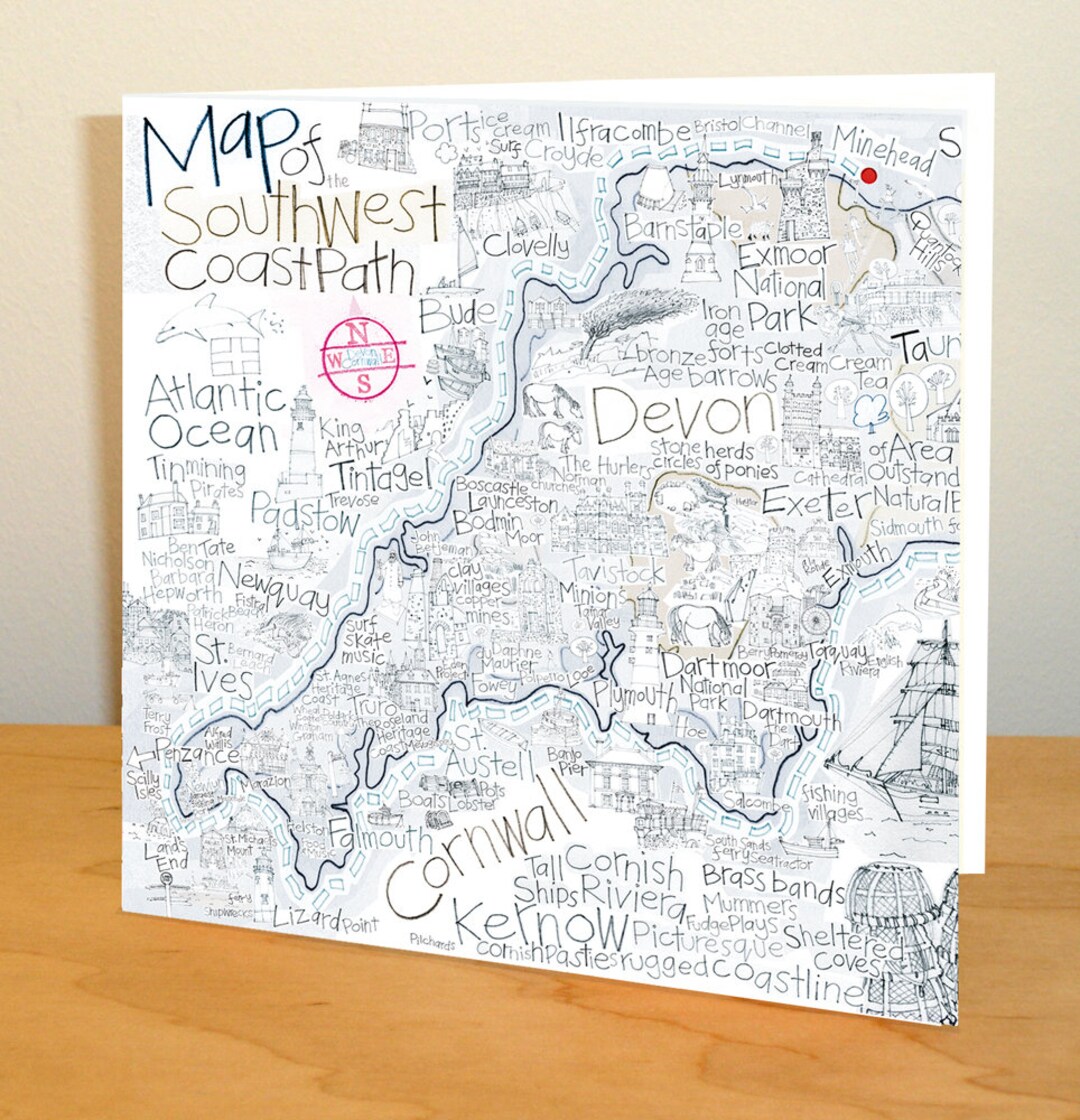 Map of
the
Southwest
Coast Path
Ports ice cream
Surf Croyde
Ilfracombe
Bristol Channel
Minehead
S
Lynmouth
Clovelly
Barnstaple
Exmoor
National
Park
Quantock
Hills
Bude
Iron
age
forts
bronze
Age barrows
Clotted
Cream
Cream
Tea
Taun
N
W E
S
Devon
Cornwall
Atlantic
Ocean
King
Arthur
Tintagel
Devon
stone
circles
herds
of ponies
Cathedral
of Area
Outstand
Natural B
Exeter
Tin mining
Pirates
Trevose
Padstow
The Hurlers
Norman
churches
Boscastle
Launceston
Bodmin
Moor
Sidmouth fo
Exmouth
Ben
Nicholson
Tate
Barbara
Hepworth
Newquay
Fistral
Patrick
Heron
John
Betjeman
clay
villages
copper
mines
Tavistock
Minions
Tamar
Valley
St.
Ives
Bernard
Leach
surf
skate
music
Daphne
Du
Maurier
Looe
Fowey
Plymouth
Hoe
Dartmoor
National
Park
Berry Pomeroy
Torquay
English
Riviera
Dartmouth
The
Dart
Terry
Frost
Alfred
Wallis
St. Agnes
Heritage
Coast
Graham
Truro
the Roseland
Heritage
Coast
Penzance
Scilly
Isles
Marazion
St.
Austell
Banjo
Pier
Boats
Lobster
Pots
Salcombe
fishing
villages
South Sands
ferry Seatractor
Helston
Falmouth
Lands
End
St. Michaels
Mount
ferry
Shipwrecks
Lizard Point
Cornwall
Tall
Ships
Cornish
Riviera
Brass bands
Mummers
Fudge Plays
Kernow
Picturesque
Sheltered
Coves
Pilchards
Cornish Pasties rugged coastline